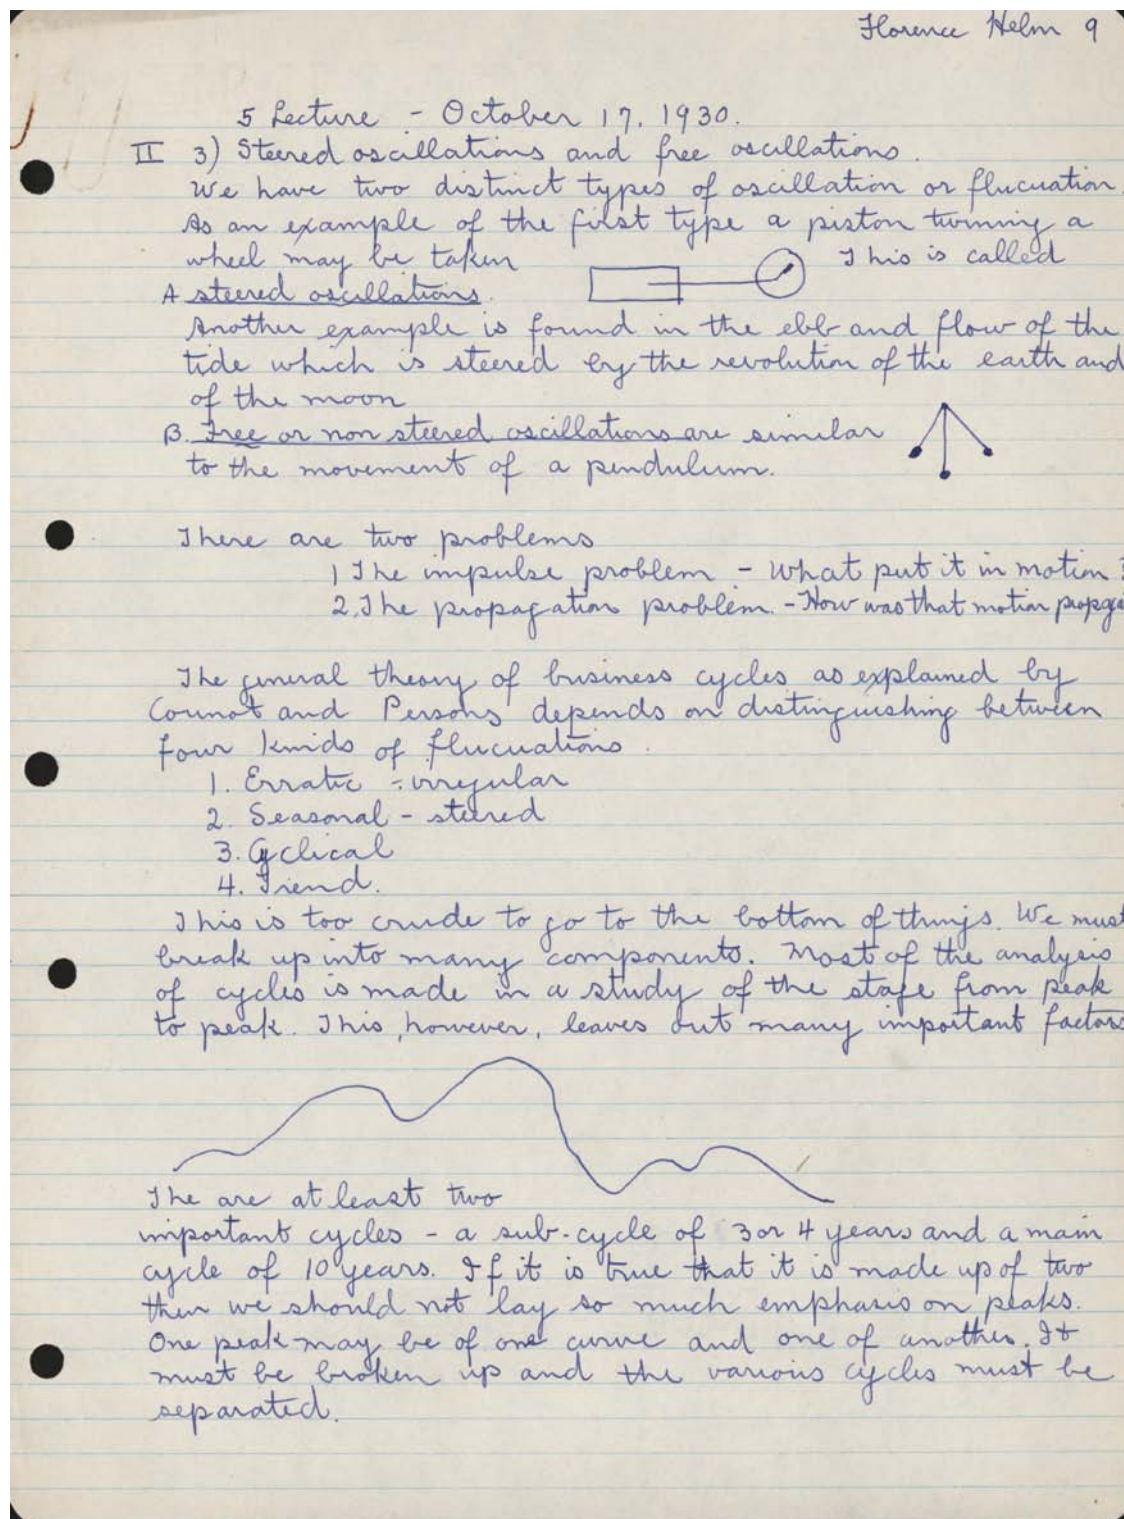 Florence Helm 9
5 Lecture - October 17, 1930.
II 3) Steered oscillations and free oscillations.
We have two distinct types of oscillation or flucuation.
As an example of the first type a piston turning a
wheel may be taken This is called
A steered oscillations.
Another example is found in the ebb and flow of the
tide which is steered by the revolution of the earth and
of the moon
B. Free or non steered oscillations are similar
to the movement of a pendulum.
There are two problems
1 The impulse problem - What put it in motion?
2. The propagation problem. - How was that motion propga
The general theory of business cycles as explained by
Cournot and Persons depends on distinguishing between
four kinds of flucuations.
1. Erratic - irregular
2. Seasonal - steered
3. Cyclical
4. Trend.
This is too crude to go to the bottom of things. We must
break up into many components. Most of the analysis
of cycles is made in a study of the stage from peak
to peak. This, however, leaves out many important factors
The are at least two
important cycles - a sub-cycle of 3 or 4 years and a main
cycle of 10 years. If it is true that it is made up of two
then we should not lay so much emphasis on peaks.
One peak may be of one curve and one of another. It
must be broken up and the various cycles must be
separated.